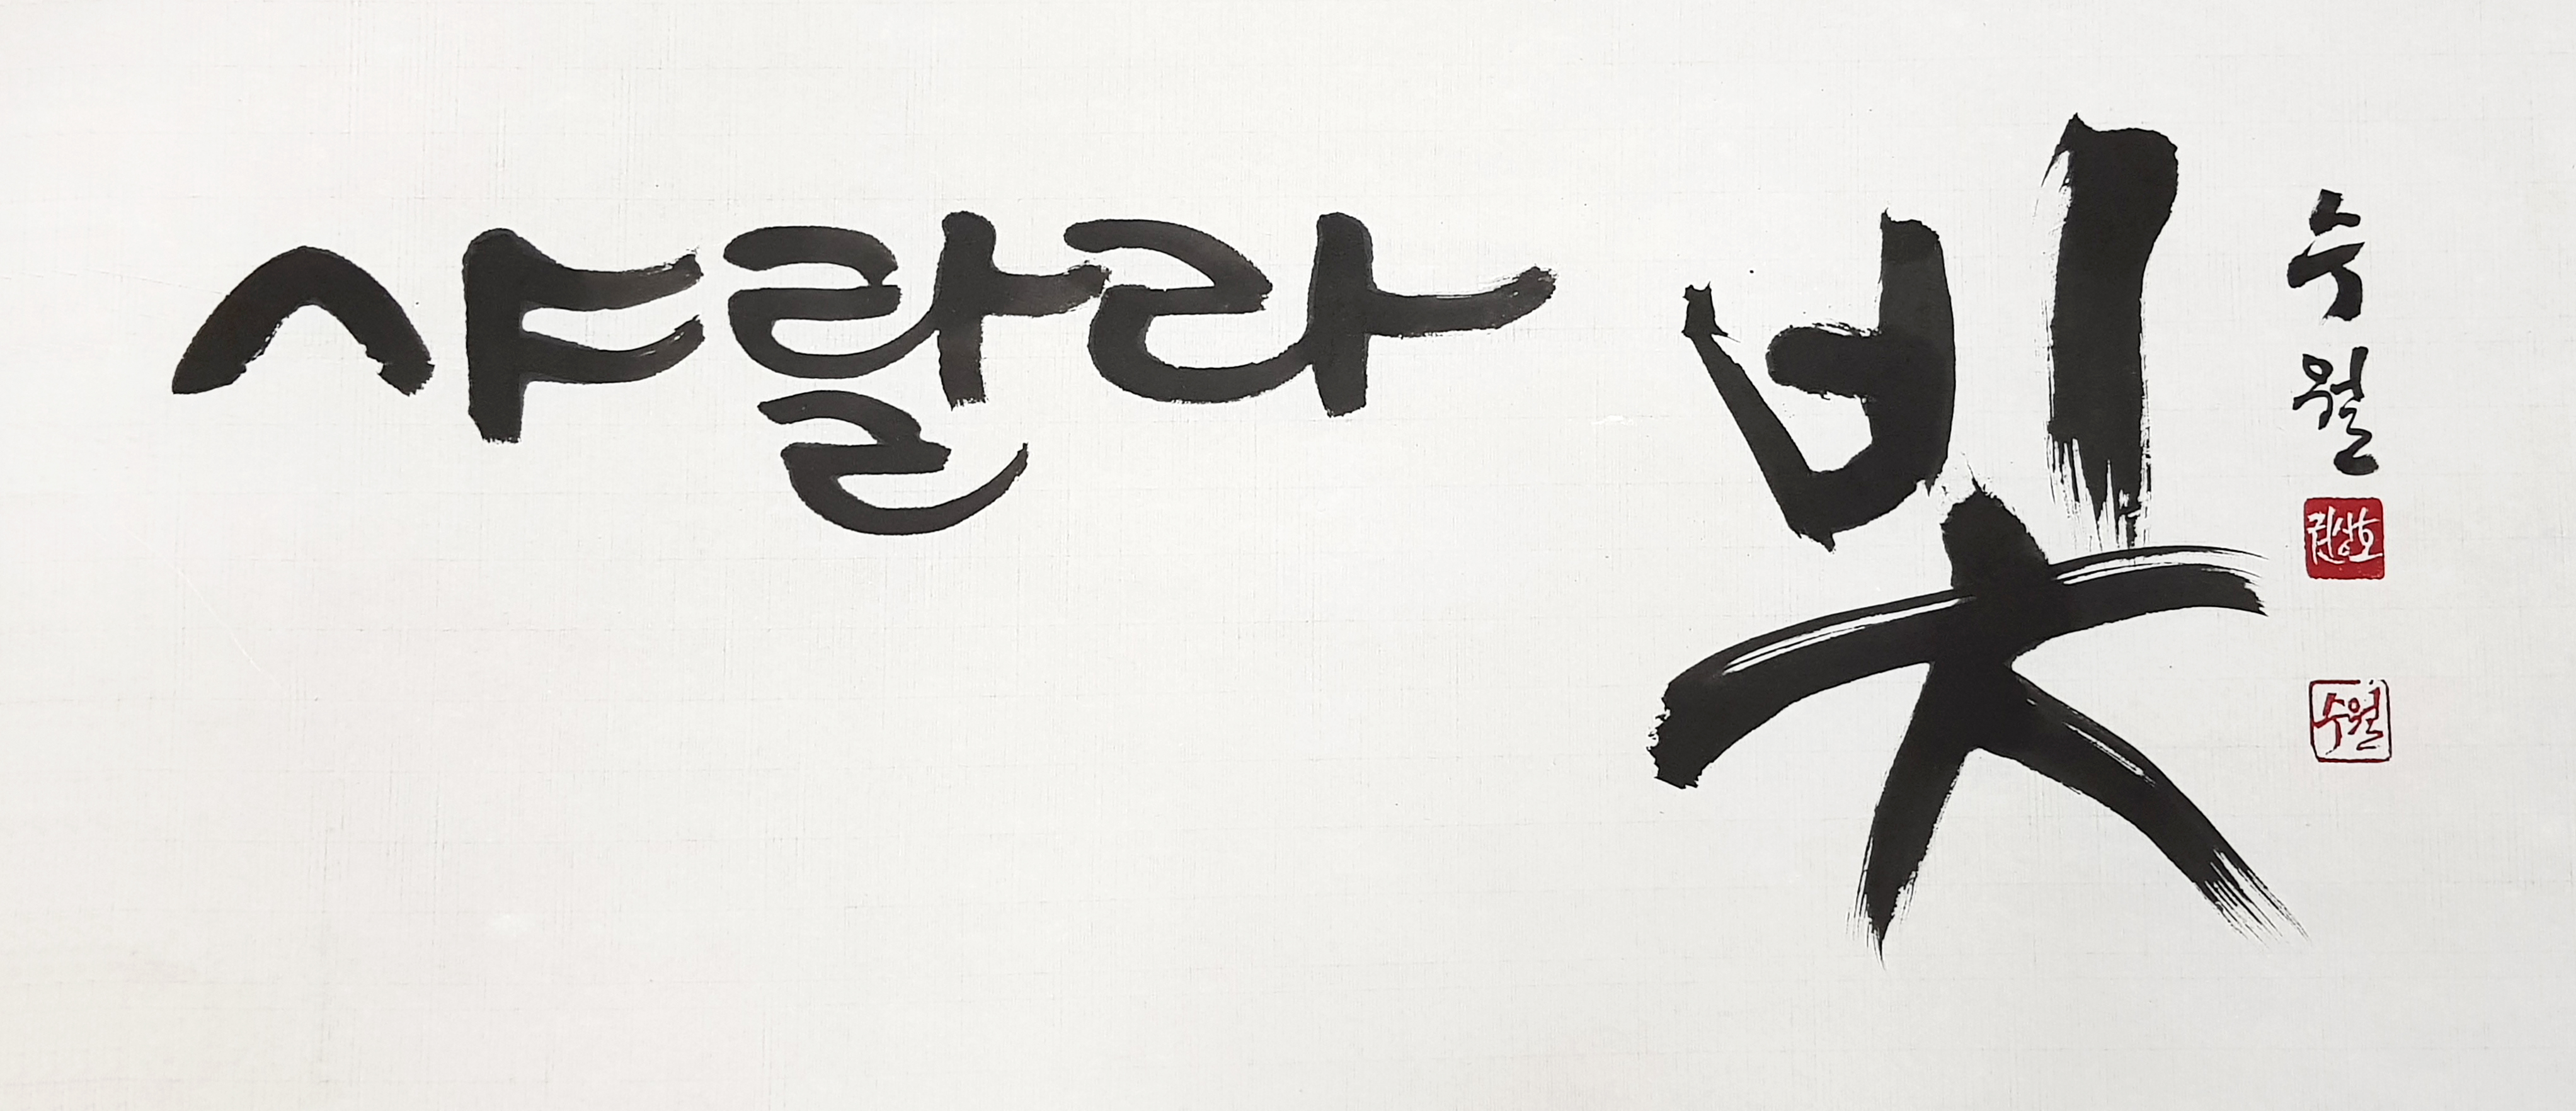 샤랄라 빛
수월
권상호
수월